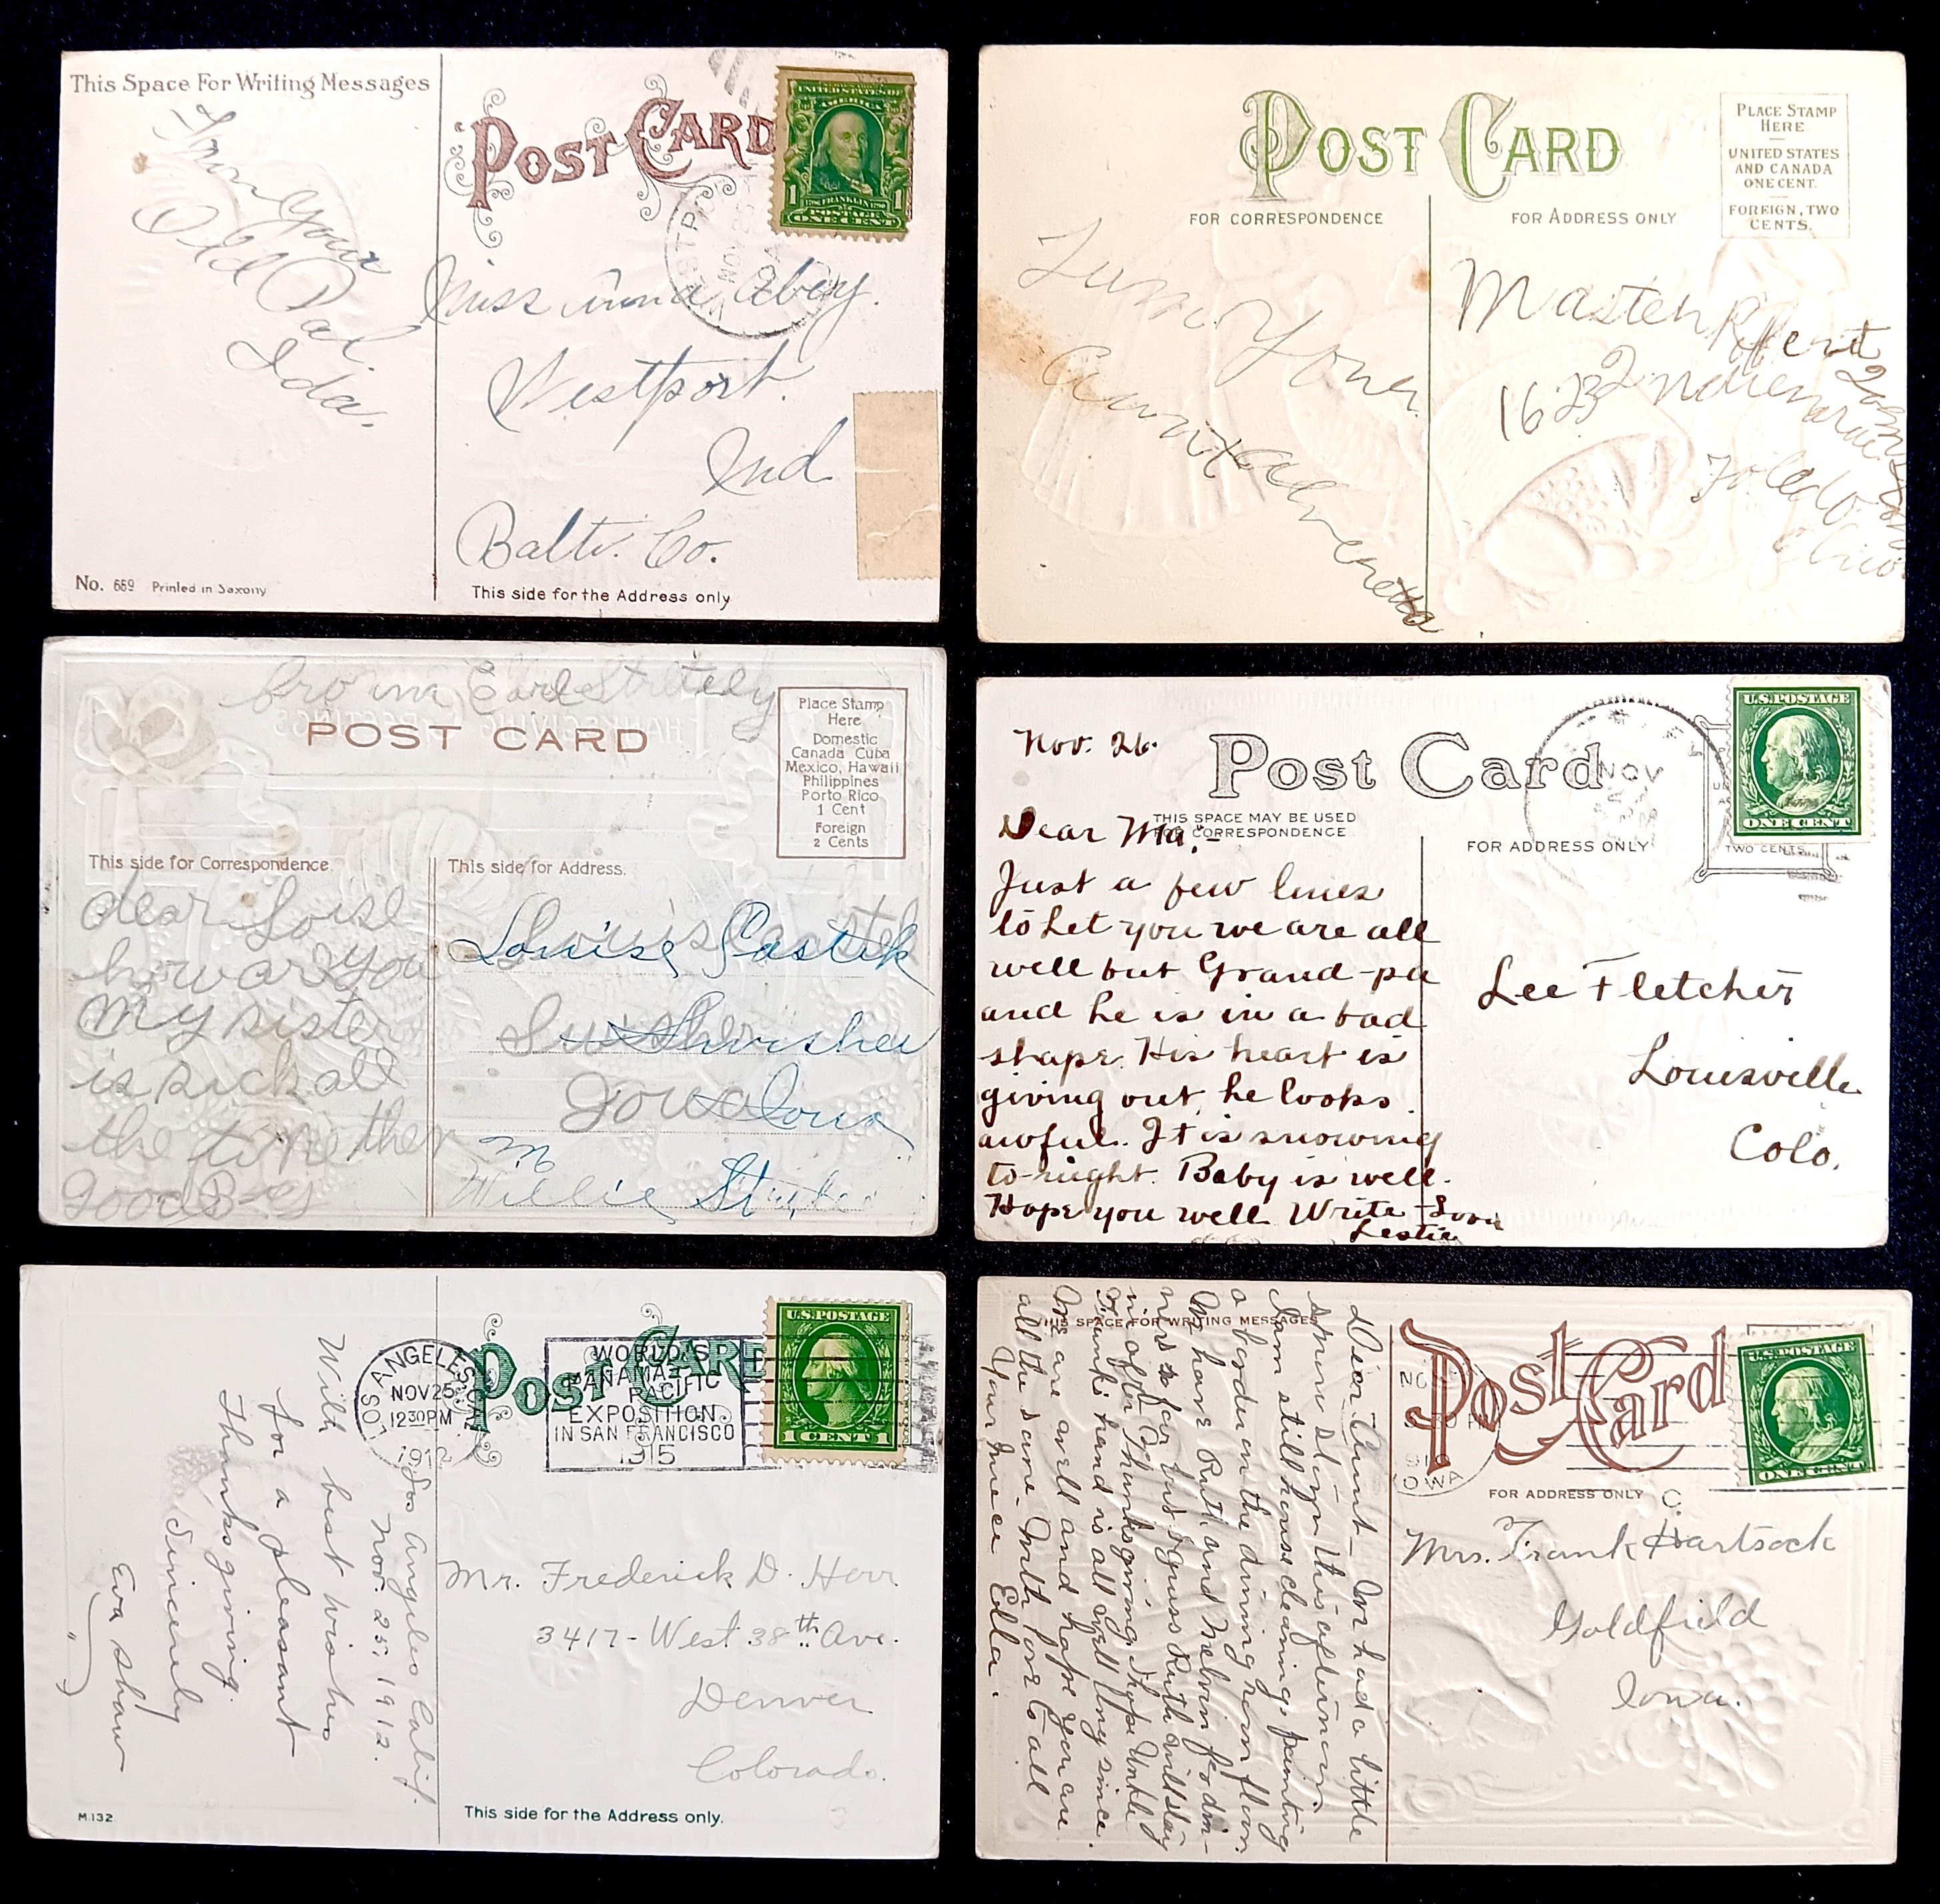 This Space For Writing Messages
POST CARD
UNITED STATES OF
AMERICA
1 FRANKLIN 1
POSTAGE
ONE CENT
NOV
From Your
Old Pal
Ida.
Miss Anna
Westport.
Md
Balto. Co.
No. 669 Printed in Saxony
This side for the Address only
POST CARD
PLACE STAMP
HERE
UNITED STATES
AND CANADA
ONE CENT.
FOREIGN, TWO
CENTS.
FOR CORRESPONDENCE
FOR ADDRESS ONLY
From Your
Aunt
Master
1623
Toledo
Ohio.
from Earl
POST CARD
Place Stamp
Here
Domestic
Canada Cuba
Mexico, Hawaii
Philippines
Porto Rico
1 Cent
Foreign
2 Cents
This side for Correspondence.
This side for Address.
dear Loise
how are you
My sister
is sick all
the time then
Good B-ey
Louise
Iowa Iowa
Nov. 26.
Post Card
U.S. POSTAGE
ONE CENT
NOV
TWO CENTS
THIS SPACE MAY BE USED
CORRESPONDENCE
FOR ADDRESS ONLY
Dear Ma:-
Just a few lines
to let you we are all
well but Grand-pa
and he is in a bad
shape. His heart is
giving out, he looks
awful. It is snowing
to-night. Baby is well.
Hope you well. Write
Leslie
Lee Fletcher
Louisville
Colo.
POST CARD
LOS ANGELES, CAL.
NOV 25
12 30 PM
1912
WORLD'S
PANAMA-
PACIFIC
EXPOSITION
IN SAN FRANCISCO
1915
U.S. POSTAGE
1 CENT 1
Los Angeles Calif.
Nov. 25, 1912.
With best wishes
for a pleasant
Thanksgiving.
Sincerely
Eva Shaw
Mr. Frederick D. Herr
3417-West 38th Ave.
Denver
Colorado.
M.132
This side for the Address only.
THIS SPACE FOR WRITING MESSAGES
Post Card
U.S. POSTAGE
ONE CENT
IOWA
FOR ADDRESS ONLY
Dear Aunt- We had a little
snow storm this afternoon
I am still housecleaning, painting
a border on the dining room floor.
We have Ruth and Melvin for din-
ner so far but I guess Ruth will stay
till after Thanksgiving. I hope Uncle
Frank's hand is all well long since.
We are well and hope you are
all the same. With love to all
Your niece Edla.
Mrs. Frank C. Hartsock
Goldfield
Iowa.